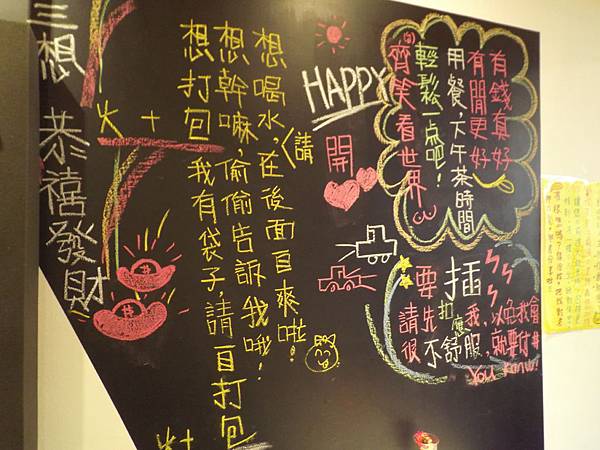 三想
恭禧發財
想喝水,在後面自爽啦!
〈請
想幹嘛偷偷告訴我哦!
想打包 我有袋子,請自打包
HAPPY
開
有錢真好
有閒更好
用餐,大午茶時間
輕鬆一点吧!
齊笑看世界
插
要先
請
很不舒服,就要付#
You know!